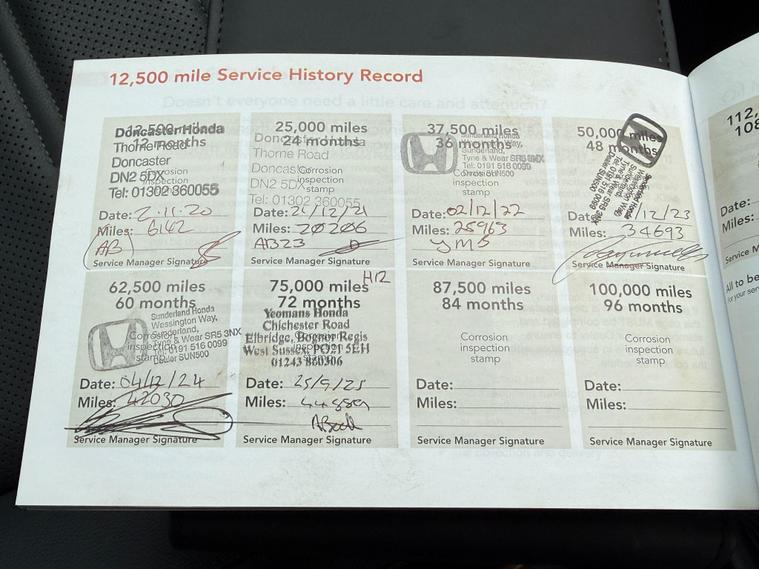 12,500 mile Service History Record
12,500 miles
12 months
Doncaster Honda
Thorne Road
Doncaster
DN2 5DX
Tel: 01302 360055
Date: 2.11.20
Miles: 6142
AB
Service Manager Signature
25,000 miles
24 months
Doncaster Honda
Thorne Road
Doncaster
DN2 5DX
Tel: 01302 360055
Corrosion
inspection
stamp
Date: 21/12/21
Miles: 20206
AB23
Service Manager Signature
37,500 miles
36 months
Sunderland Honda
Wessington Way,
Sunderland,
Tyne & Wear SR5 3NX
Tel: 0191 516 0099
Dealer SUN500
Corrosion
inspection
stamp
Date: 02/12/22
Miles: 25963
Service Manager Signature
50,000 miles
48 months
Sunderland Honda
Wessington Way,
Sunderland,
Tyne & Wear SR5 3NX
Tel: 0191 516 0099
Dealer SUN500
Date: /12/23
Miles: 34693
Service Manager Signature
62,500 miles
60 months
Sunderland Honda
Wessington Way,
Sunderland,
Tyne & Wear SR5 3NX
Tel: 0191 516 0099
Dealer SUN500
Corrosion
inspection
stamp
Date: 04/12/24
Miles: 42030
Service Manager Signature
H12
75,000 miles
72 months
Yeomans Honda
Chichester Road
Elbridge, Bognor Regis
West Sussex, PO21 5EH
01243 860306
Corrosion
inspection
stamp
Date: 25/9/25
Miles:
Service Manager Signature
87,500 miles
84 months
Corrosion
inspection
stamp
Date:
Miles:
Service Manager Signature
100,000 miles
96 months
Corrosion
inspection
stamp
Date:
Miles:
Service Manager Signature
112,
108
Date:
Miles:
Service M
All to be